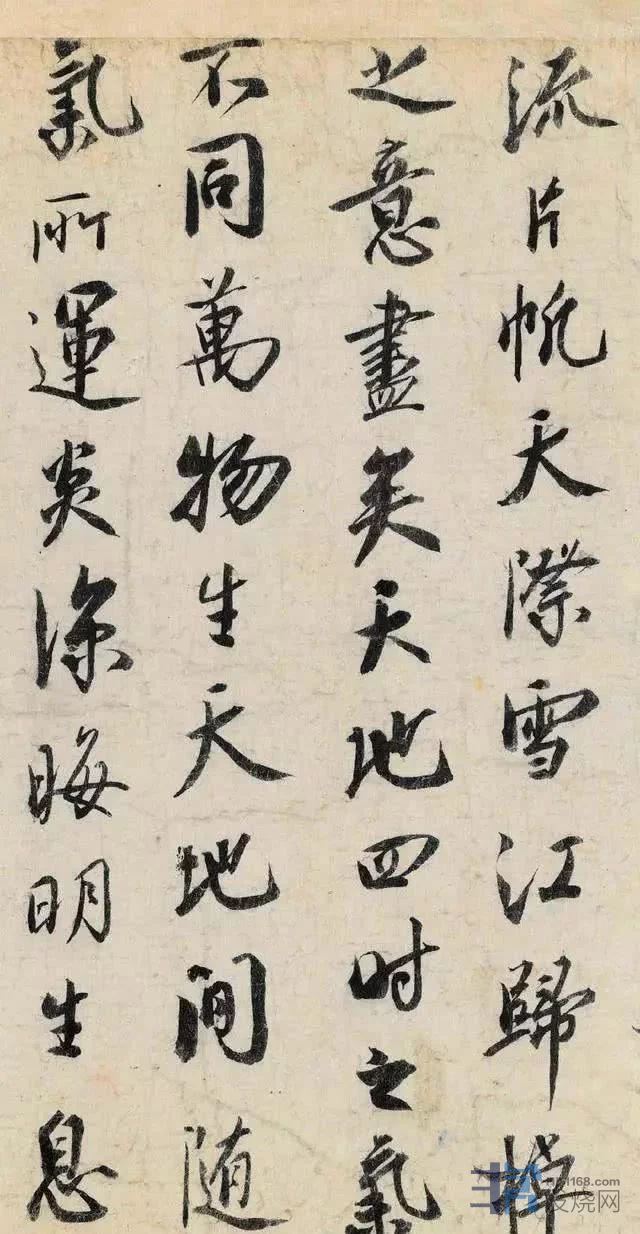 流片帆天際雪江歸棹
之意盡矣天地四時之氣
不同萬物生天地間随
氣所運炎涼晦明生息
発烧网